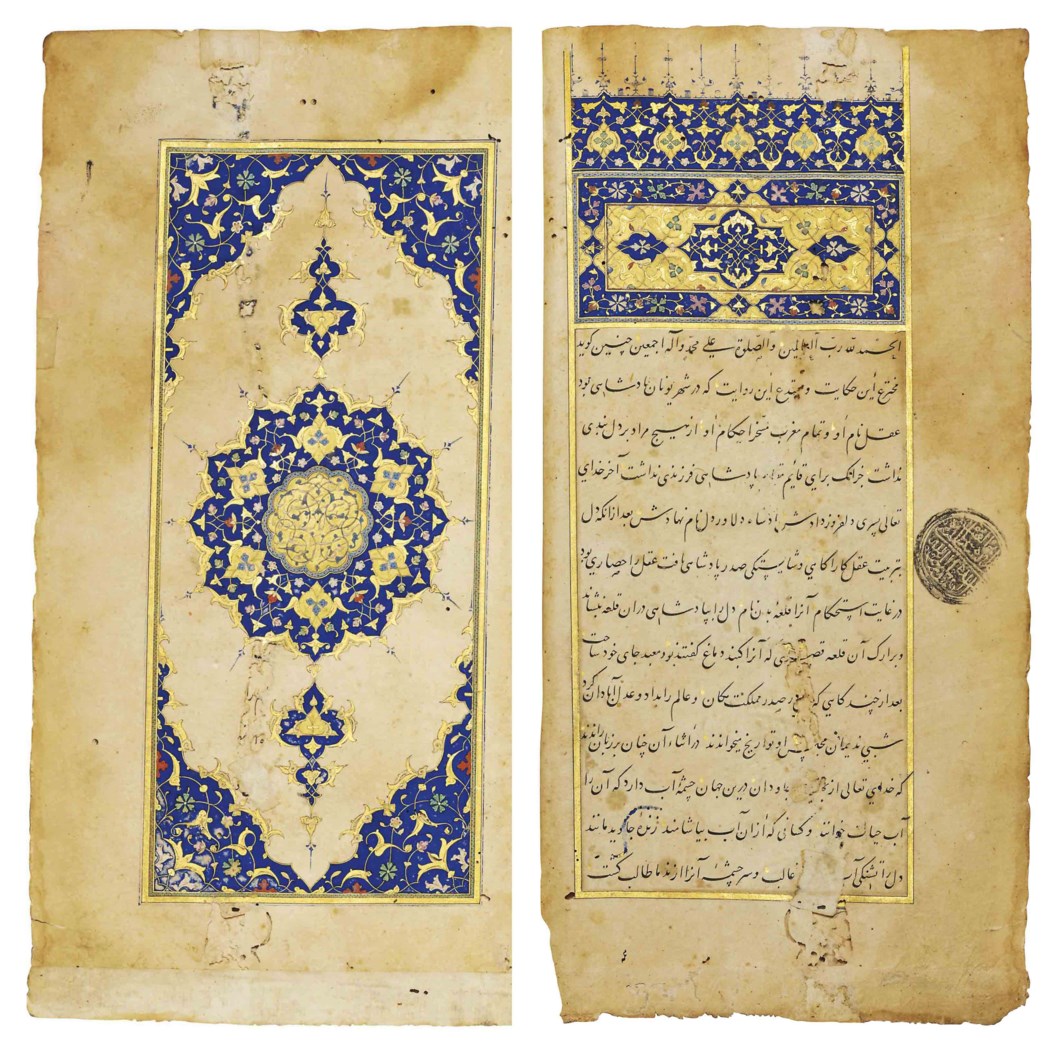 الحمد لله رب العالمین والصلوة علی محمد وآله اجمعین چنین کوید
مخترع این حکایت و مبتدع این روایت که در شهر یونان پادشاهی بود
عقل نام او و تمام مغرب مسخر احکام او از هیچ مراد بر دل بندی
نداشت جز آنک برای قایم پادشاهی فرزندی نداشت آخر خدای
تعالی پسری دلفروز دادش پادشاه دلاور دل نام نهادش بعد از انکه دل
بتربیت عقل کاراکاهی و شایستکی صدر پادشاهی یافت عقل را حصاری بود
در غایت استحکام آنرا قلعه بدن نام دل را بپادشاهی در ان قلعه بنشاند
و بر ارک آن قلعه که آنرا کنبد دماغ کفتندی بود معبد جای خود ساخت
بعد از چند کاهی که صدر مملکت مکان و عالم را بداد و عدل آبادان کرد
شبی ندیمان او تواریخ میخواندند در اثناء آن چنان بر زبان راندند
که خدای تعالی از درین جهان چشمه آب دارد که آن را
آب حیات خوانند و کسانی که از ان آب بیاشامند زنده جاوید مانند
دل را تشنکی غالب و سرچشمه آنرا از ندما طالب کشت